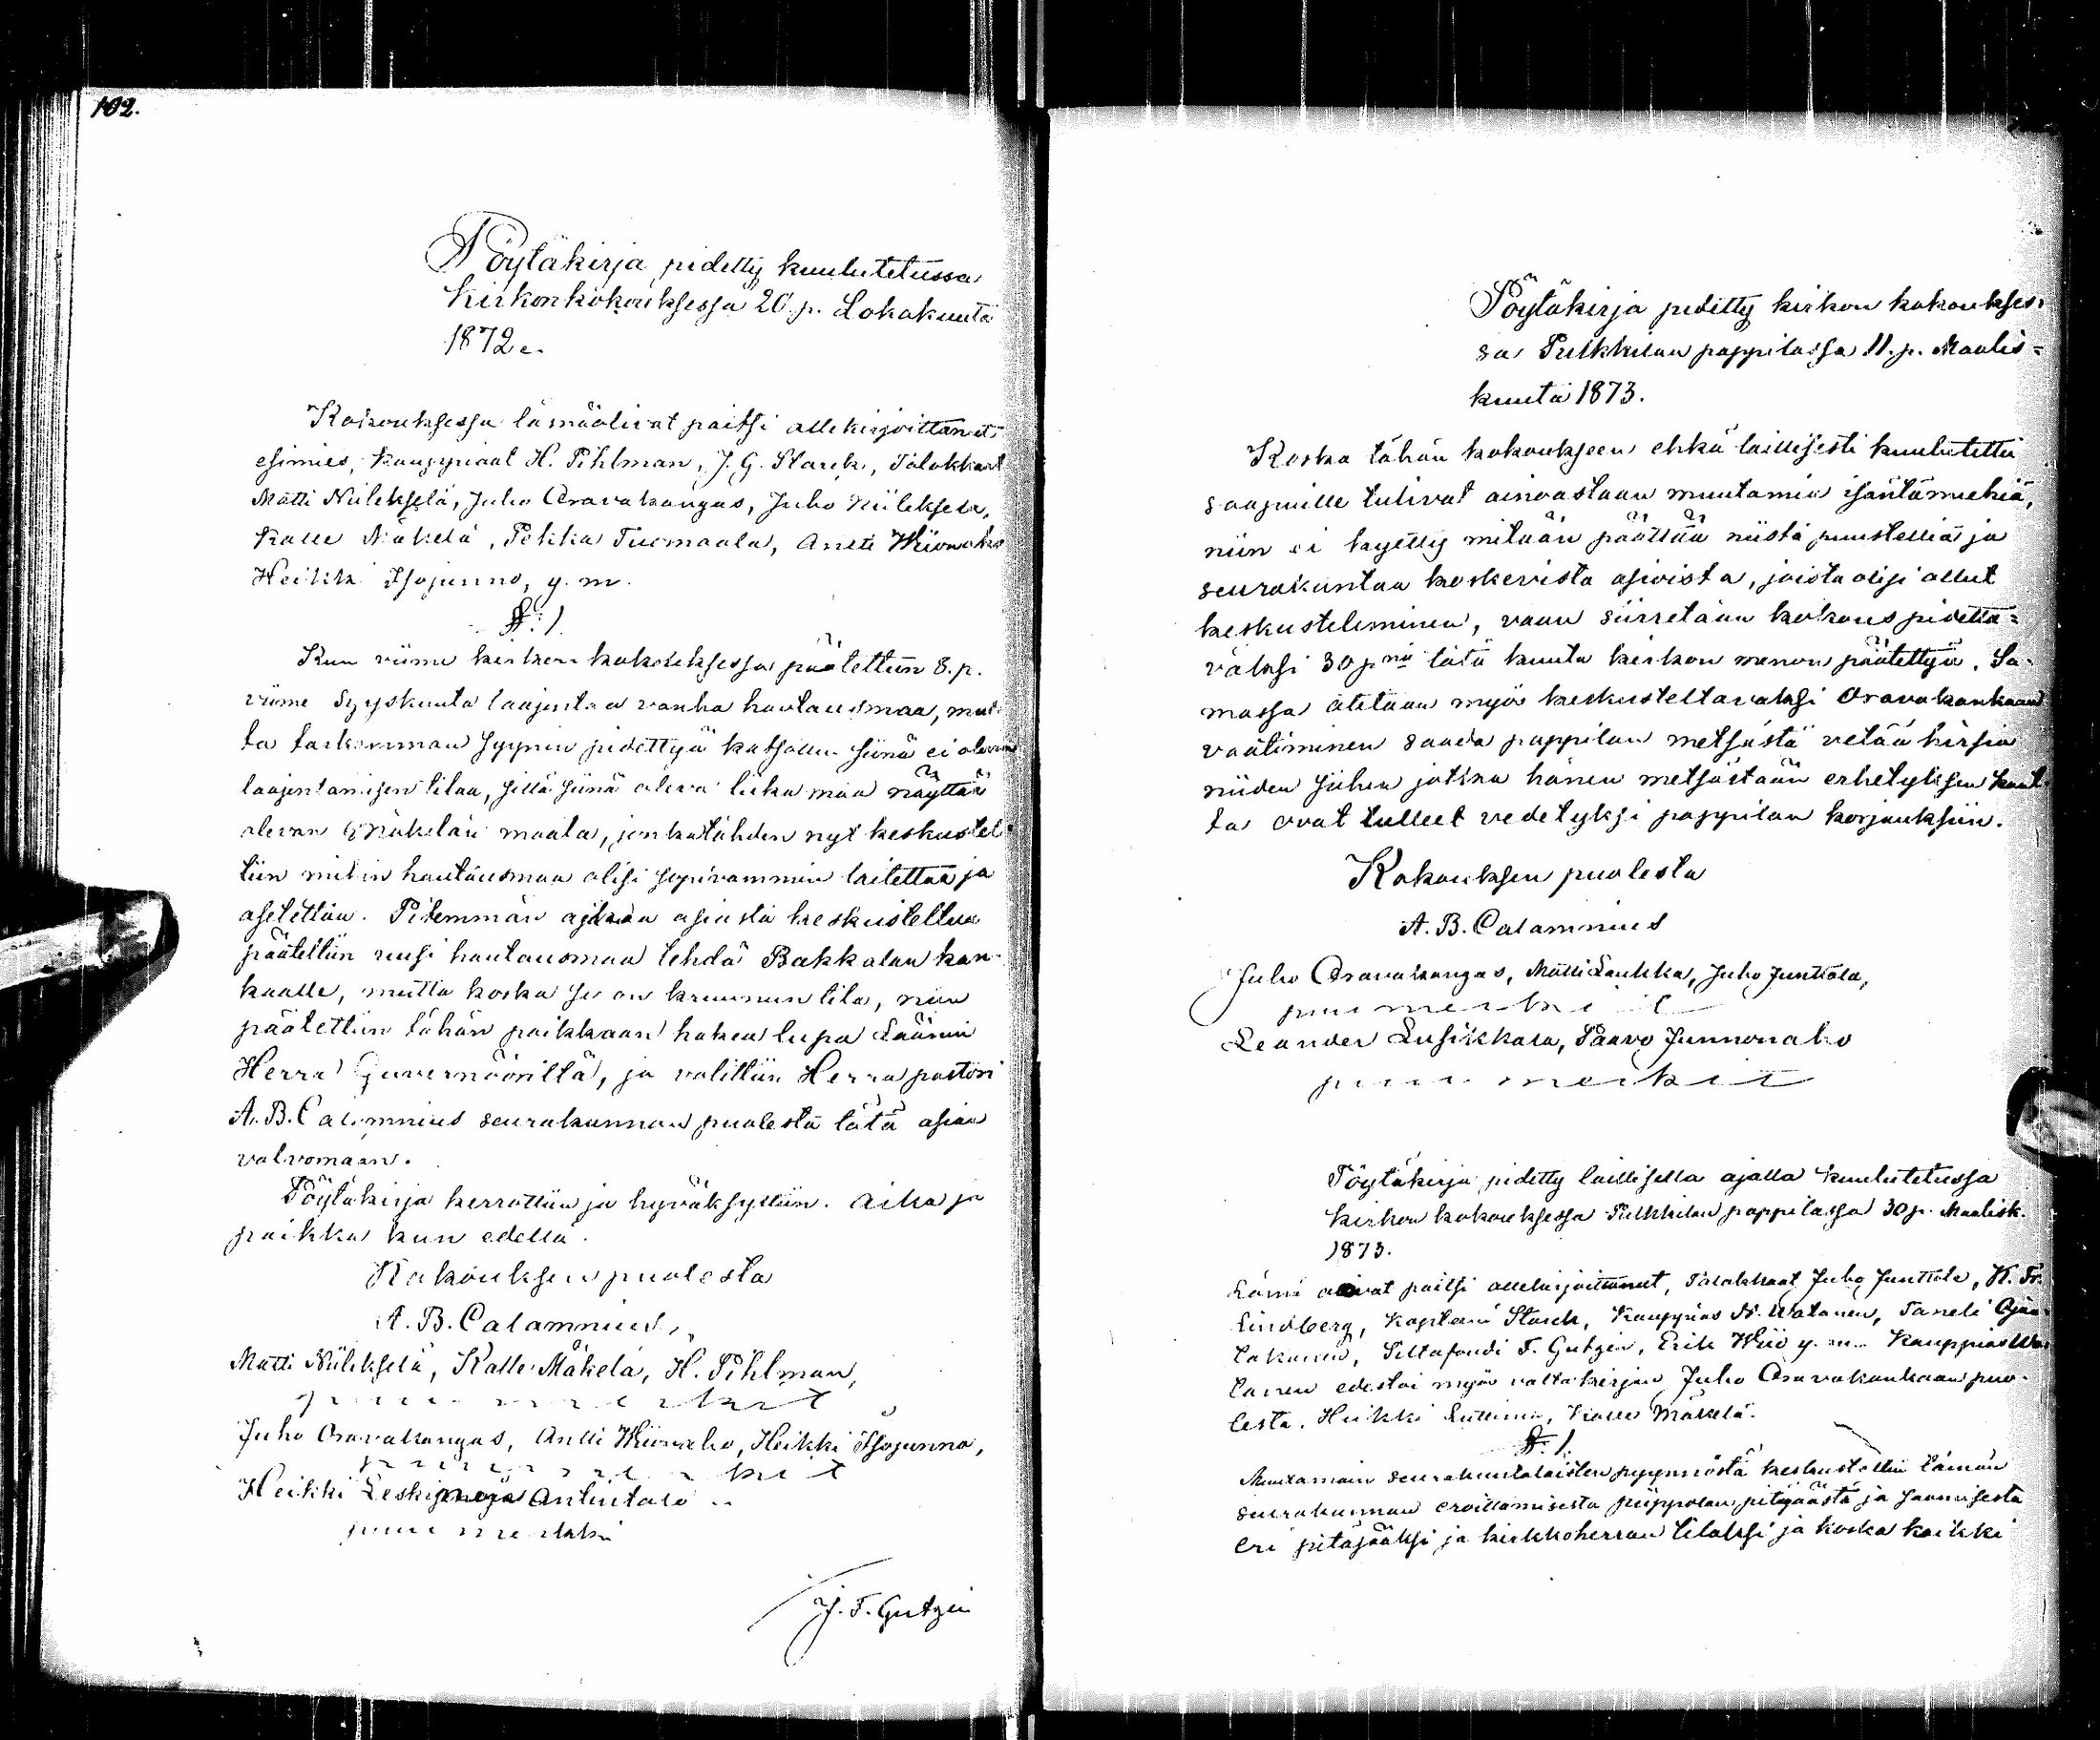 102.
Pöytäkirja pidetty kuulutetussa
kirkonkokouksessa 20 p. Lokakuuta
1872.
Kokouksessa läsnäolivat paitsi allekirjoittanut
esimies, kauppiaat H. Pihlman, J. G. Starck, Talokkaat
Matti Niileksелä, Juho Oravakangas, Juho Niileksela,
Kalle Mäkelä, Pekka Tuomaala, Antti Wiionaho
Heikki Isojunno, y. m.
§: 1.
Kun viime kirkon kokouksessa päätettiin 8. p.
viime Syyskuuta laajentaa vanha hautausmaa, mut-
ta tarkemman syynin pidettyä katsottu siinä ei olevan
laajentamisen tilaa, sillä siinä oleva liika maa näyttää
olevan Mäkelän maata, jonkatähden nyt keskustel-
tiin mihin hautausmaa olisi sopivammin laitettaa ja
asetettaa. Pitemmän ajan asiasta keskusteltua
päätettiin uusi hautausmaa tehdä Bakkalan kan-
kaalle, mutta koska se on kruunun tila, niin
päätettiin tähän paikkaan hakea lupa Läänin
Herra Guvernöörillä, ja valittiin Herra pastori
A. B. Calamnius seurakunnan puolesta tätä asiaa
valvomaan.
Pöytäkirja kerrottiin ja hyväksyttiin. Aika ja
paikka kun edellä.
Kokouksen puolesta
A. B. Calamnius
Matti Niilekselä, Kalle Mäkelä, H. Pihlman,
puumerkit
Juho Oravakangas, Antti Wiionaho, Heikki Isojunno,
puumerkit
Heikki Leskinen Antintalo
puumerkki
J. F. Gutzén
Pöytäkirja pidetty kirkon kokoukses-
sa Pulkkilan pappilassa 11. p. Maalis-
kuuta 1873.
Koska tähän kokoukseen ehkä laillisesti kuulutettu
saapuille tulivat ainoastaan muutamia isäntämiehiä,
niin ei käyetty mitään päättää niistä puustellia ja
seurakuntaa koskevista asioista, joista olisi ollut
keskusteleminen, vaan siirretään kokous pidettä-
väksi 30 pnä tätä kuuta kirkon menon päätettyä. Sa-
massa otetaan myös keskusteltavaksi Oravakankaan
vaatiminen saada pappilan metsästä vetää hirsiä
niiden siihen jotka hänen metsästään erhetyksen kaut-
ta ovat tulleet vedetyksi pappilan korjauksiin.
Kokouksen puolesta
A. B. Calamnius
Juho Oravakangas, Matti Laukka, Juho Junttola,
puumerkit
Leander Lusikkala, Paavo Junnonaho
puumerkit
Pöytäkirja pidetty laillisella ajalla kuulutetussa
kirkon kokouksessa Pulkkilan pappilassa 30 p. Maalisk.
1873.
Läsnä olivat paitsi allekirjoittanut, Talokkaat Juho Junttola, K. Fr.
Lindberg, Kapteni Starck, Kauppias N. Watanen, Taneli Ojan-
takanen, Siltafouti F. Gutzén, Erik Wiio y. m. Kauppias Wa-
tanen edestoi myös valtakirjan Juho Oravakankaan puo-
lesta. Heikki, Kalle Mäkelä.
§: 1.
Muutamain seurakuntalaisten pyynnöstä keskusteltiin tämän
seurakunnan eroittamisesta Piippolan pitäjäästä ja saamisesta
eri pitäjääksi ja kirkkoherran tilaksi ja koska kaikki